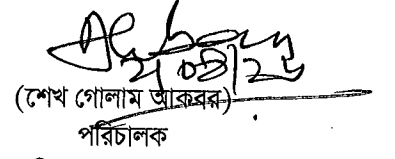 (শেখ গোলাম আকবর)
পরিচালক